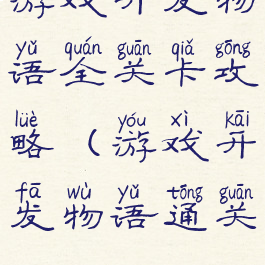 游戏开发物
yǔ quán guān qiǎ gōng
语全关卡攻
lüè yóu xì kāi
略（游戏开
fā wù yǔ tōng guān
发物语通关